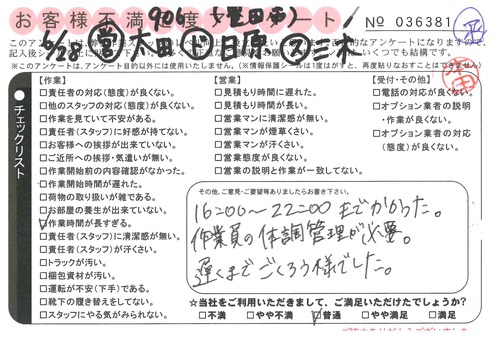 お客様不満度アンケート
906 (豊田市)
№ 036381
6/28 営 太田 心 日原 ② 三木
このアン
ートアンケートになりますので、
いくつでも結構です。
(※このアンケートは、アンケート目的以外には使用いたしません。)(※情報保護シールは1度はがすと、再度貼りなおすことはできません。)
チェックリスト
【作業】
□責任者の対応(態度)が良くない。
□他のスタッフの対応(態度)が良くない。
□作業を見ていて不安がある。
□責任者(スタッフ)に好感が持てない。
□お客様への挨拶が出来ていない。
□ご近所への挨拶・気遣いが無い。
□作業開始前の内容確認がなかった。
□作業開始時間が遅れた。
□荷物の取り扱いが雑である。
□お部屋の養生が出来ていない。
□作業時間が長すぎる。
□責任者(スタッフ)に清潔感が無い。
□責任者(スタッフ)が汗くさい。
□トラックが汚い。
□梱包資材が汚い。
□運転が不安(下手)である。
□靴下の履き替えをしてない。
□スタッフにやる気がみられない。
【営業】
□見積もり時間に遅れた。
□見積もり時間が長い。
□営業マンに清潔感が無い。
□営業マンが煙草くさい。
□営業マンが汗くさい。
□営業態度が良くない。
□営業の説明と作業が一致してない。
【受付・その他】
□電話の対応が良くない。
□オプション業者の説明
・作業が良くない。
□オプション業者の対応
(態度)が良くない。
その他、ご意見・ご要望等ありましたらお書き下さい。
16:00〜22:00までかかった。
作業員の体調管理が必要。
遅くまでごくろう様でした。
☆当社をご利用いただきまして、ご満足いただけたでしょうか?
□不満 □やや不満 □普通 □やや満足 □満足